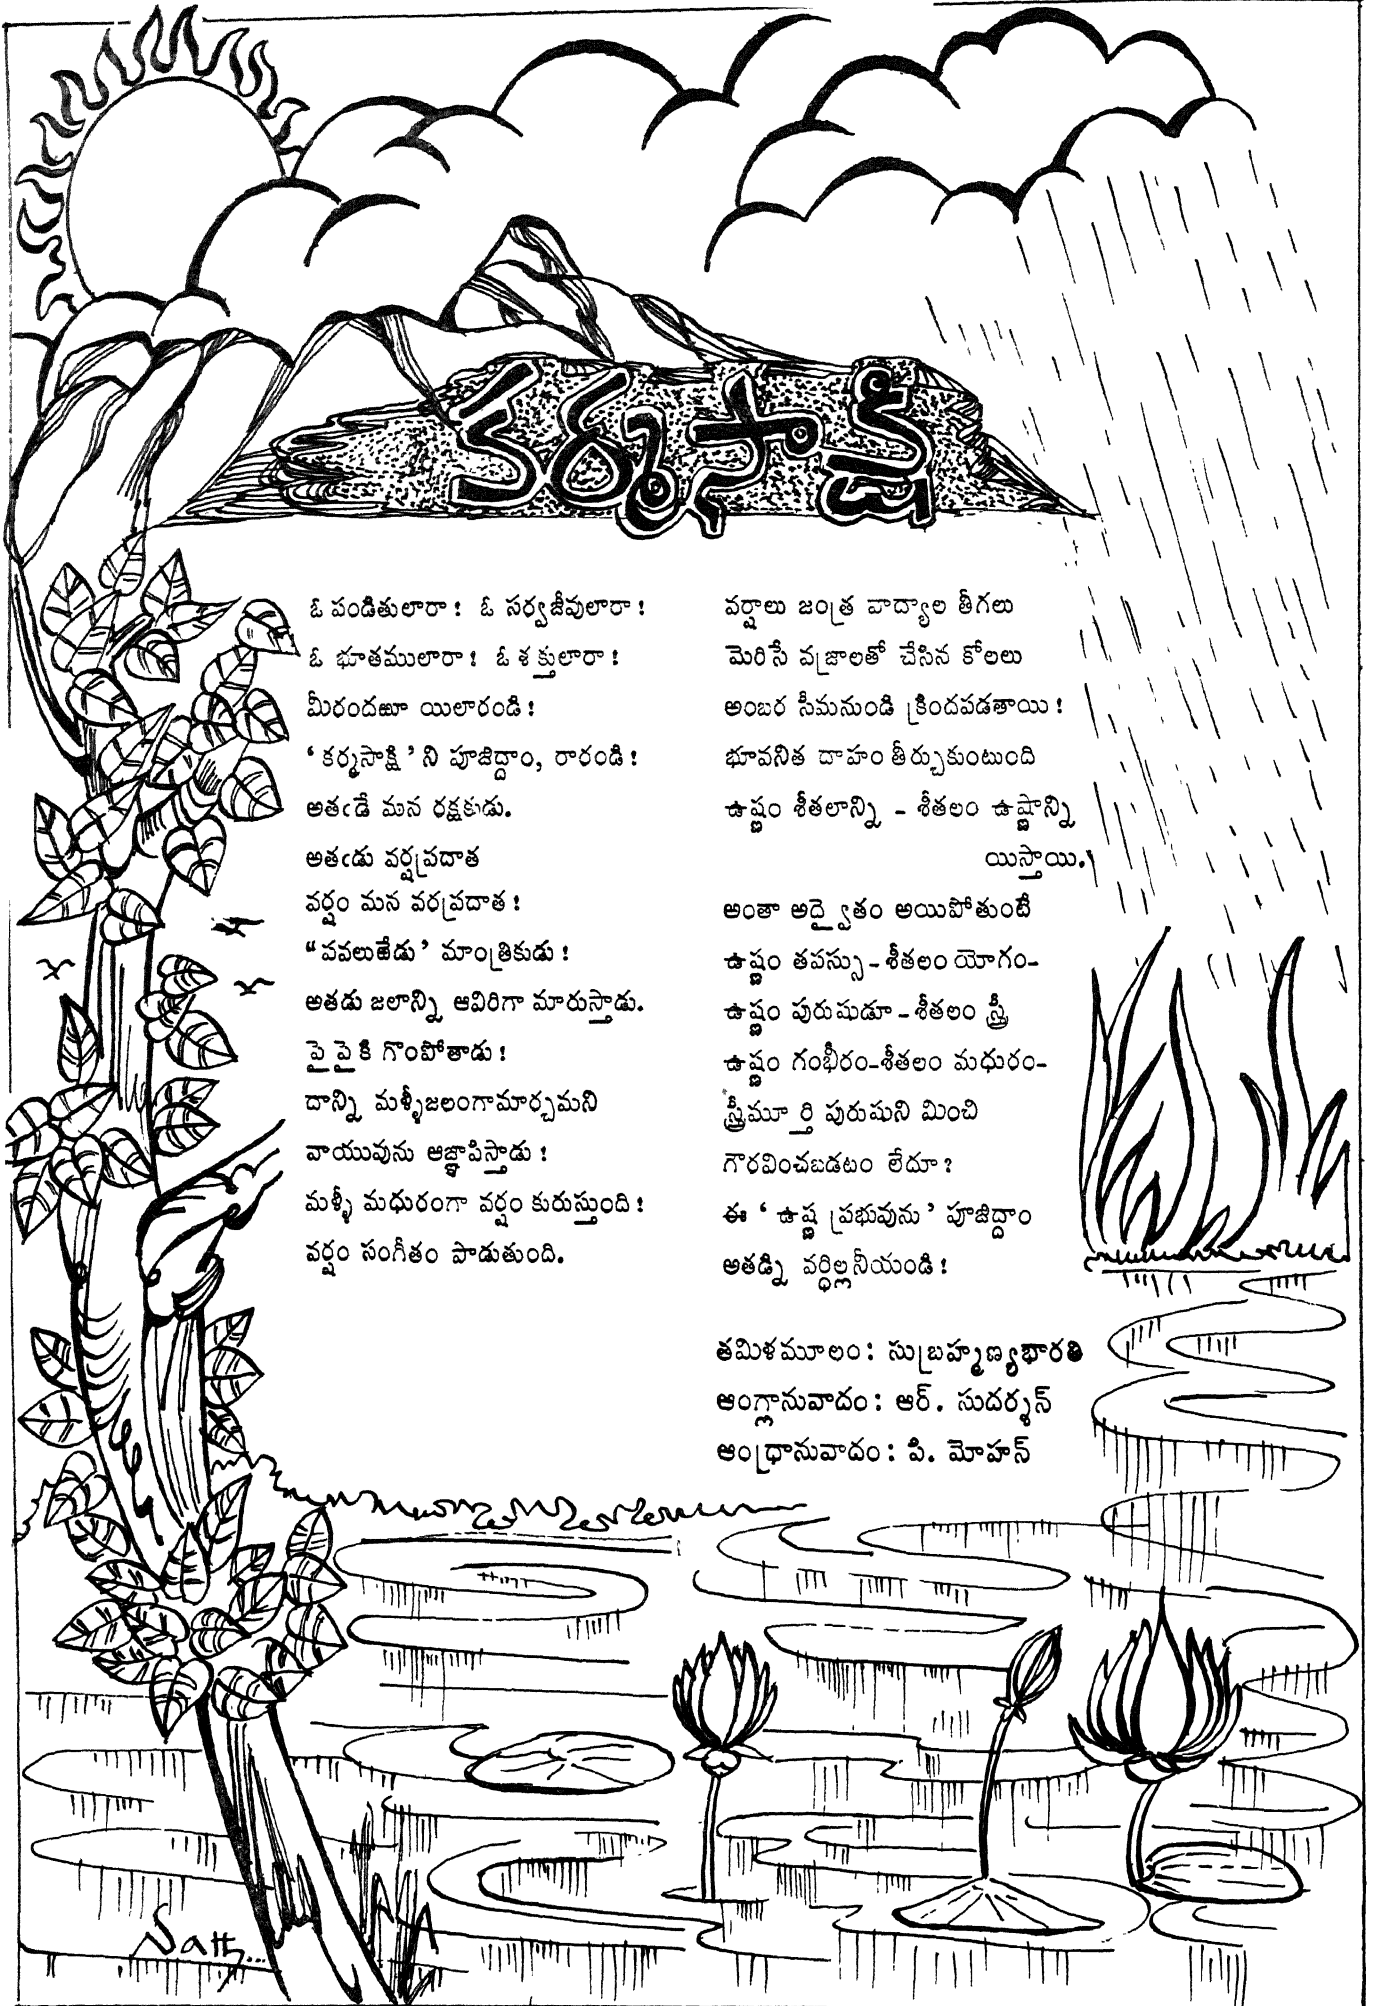 కర్మసాక్షి
ఓ పండితులారా! ఓ సర్వజీవులారా!
ఓ భూతములారా! ఓ శక్తులారా!
మీరందఱూ యిలారండి!
‘కర్మసాక్షి’ని పూజిద్దాం, రారండి!
అతఁడే మన రక్షకుడు.
అతఁడు వర్షప్రదాత
వర్షం మన వరప్రదాత!
“పవలుఱేడు’ మాంత్రికుడు!
అతడు జలాన్ని ఆవిరిగా మారుస్తాడు.
పై పైకి గొంపోతాడు!
దాన్ని మళ్ళీజలంగామార్చమని
వాయువును ఆజ్ఞాపిస్తాడు!
మళ్ళీ మధురంగా వర్షం కురుస్తుంది!
వర్షం సంగీతం పాడుతుంది.
వర్షాలు జంత్ర వాద్యాల తీగలు
మెరిసే వజ్రాలతో చేసిన కోలలు
అంబర సీమనుండి క్రిందపడతాయి!
భూవనిత దాహం తీర్చుకుంటుంది
ఉష్ణం శీతలాన్ని - శీతలం ఉష్ణాన్ని
యిస్తాయి.
అంతా అద్వైతం అయిపోతుంటే
ఉష్ణం తపస్సు-శీతలం యోగం-
ఉష్ణం పురుషుడూ-శీతలం స్త్రీ
ఉష్ణం గంభీరం-శీతలం మధురం-
స్త్రీమూర్తి పురుషుని మించి
గౌరవించబడటం లేదూ?
ఈ ‘ఉష్ణ ప్రభువును’ పూజిద్దాం
అతడ్ని వర్ధిల్లనీయండి!
తమిళమూలం: సుబ్రహ్మణ్యభారతి
ఆంగ్లానువాదం: ఆర్. సుదర్శన్
ఆంధ్రానువాదం: పి. మోహన్